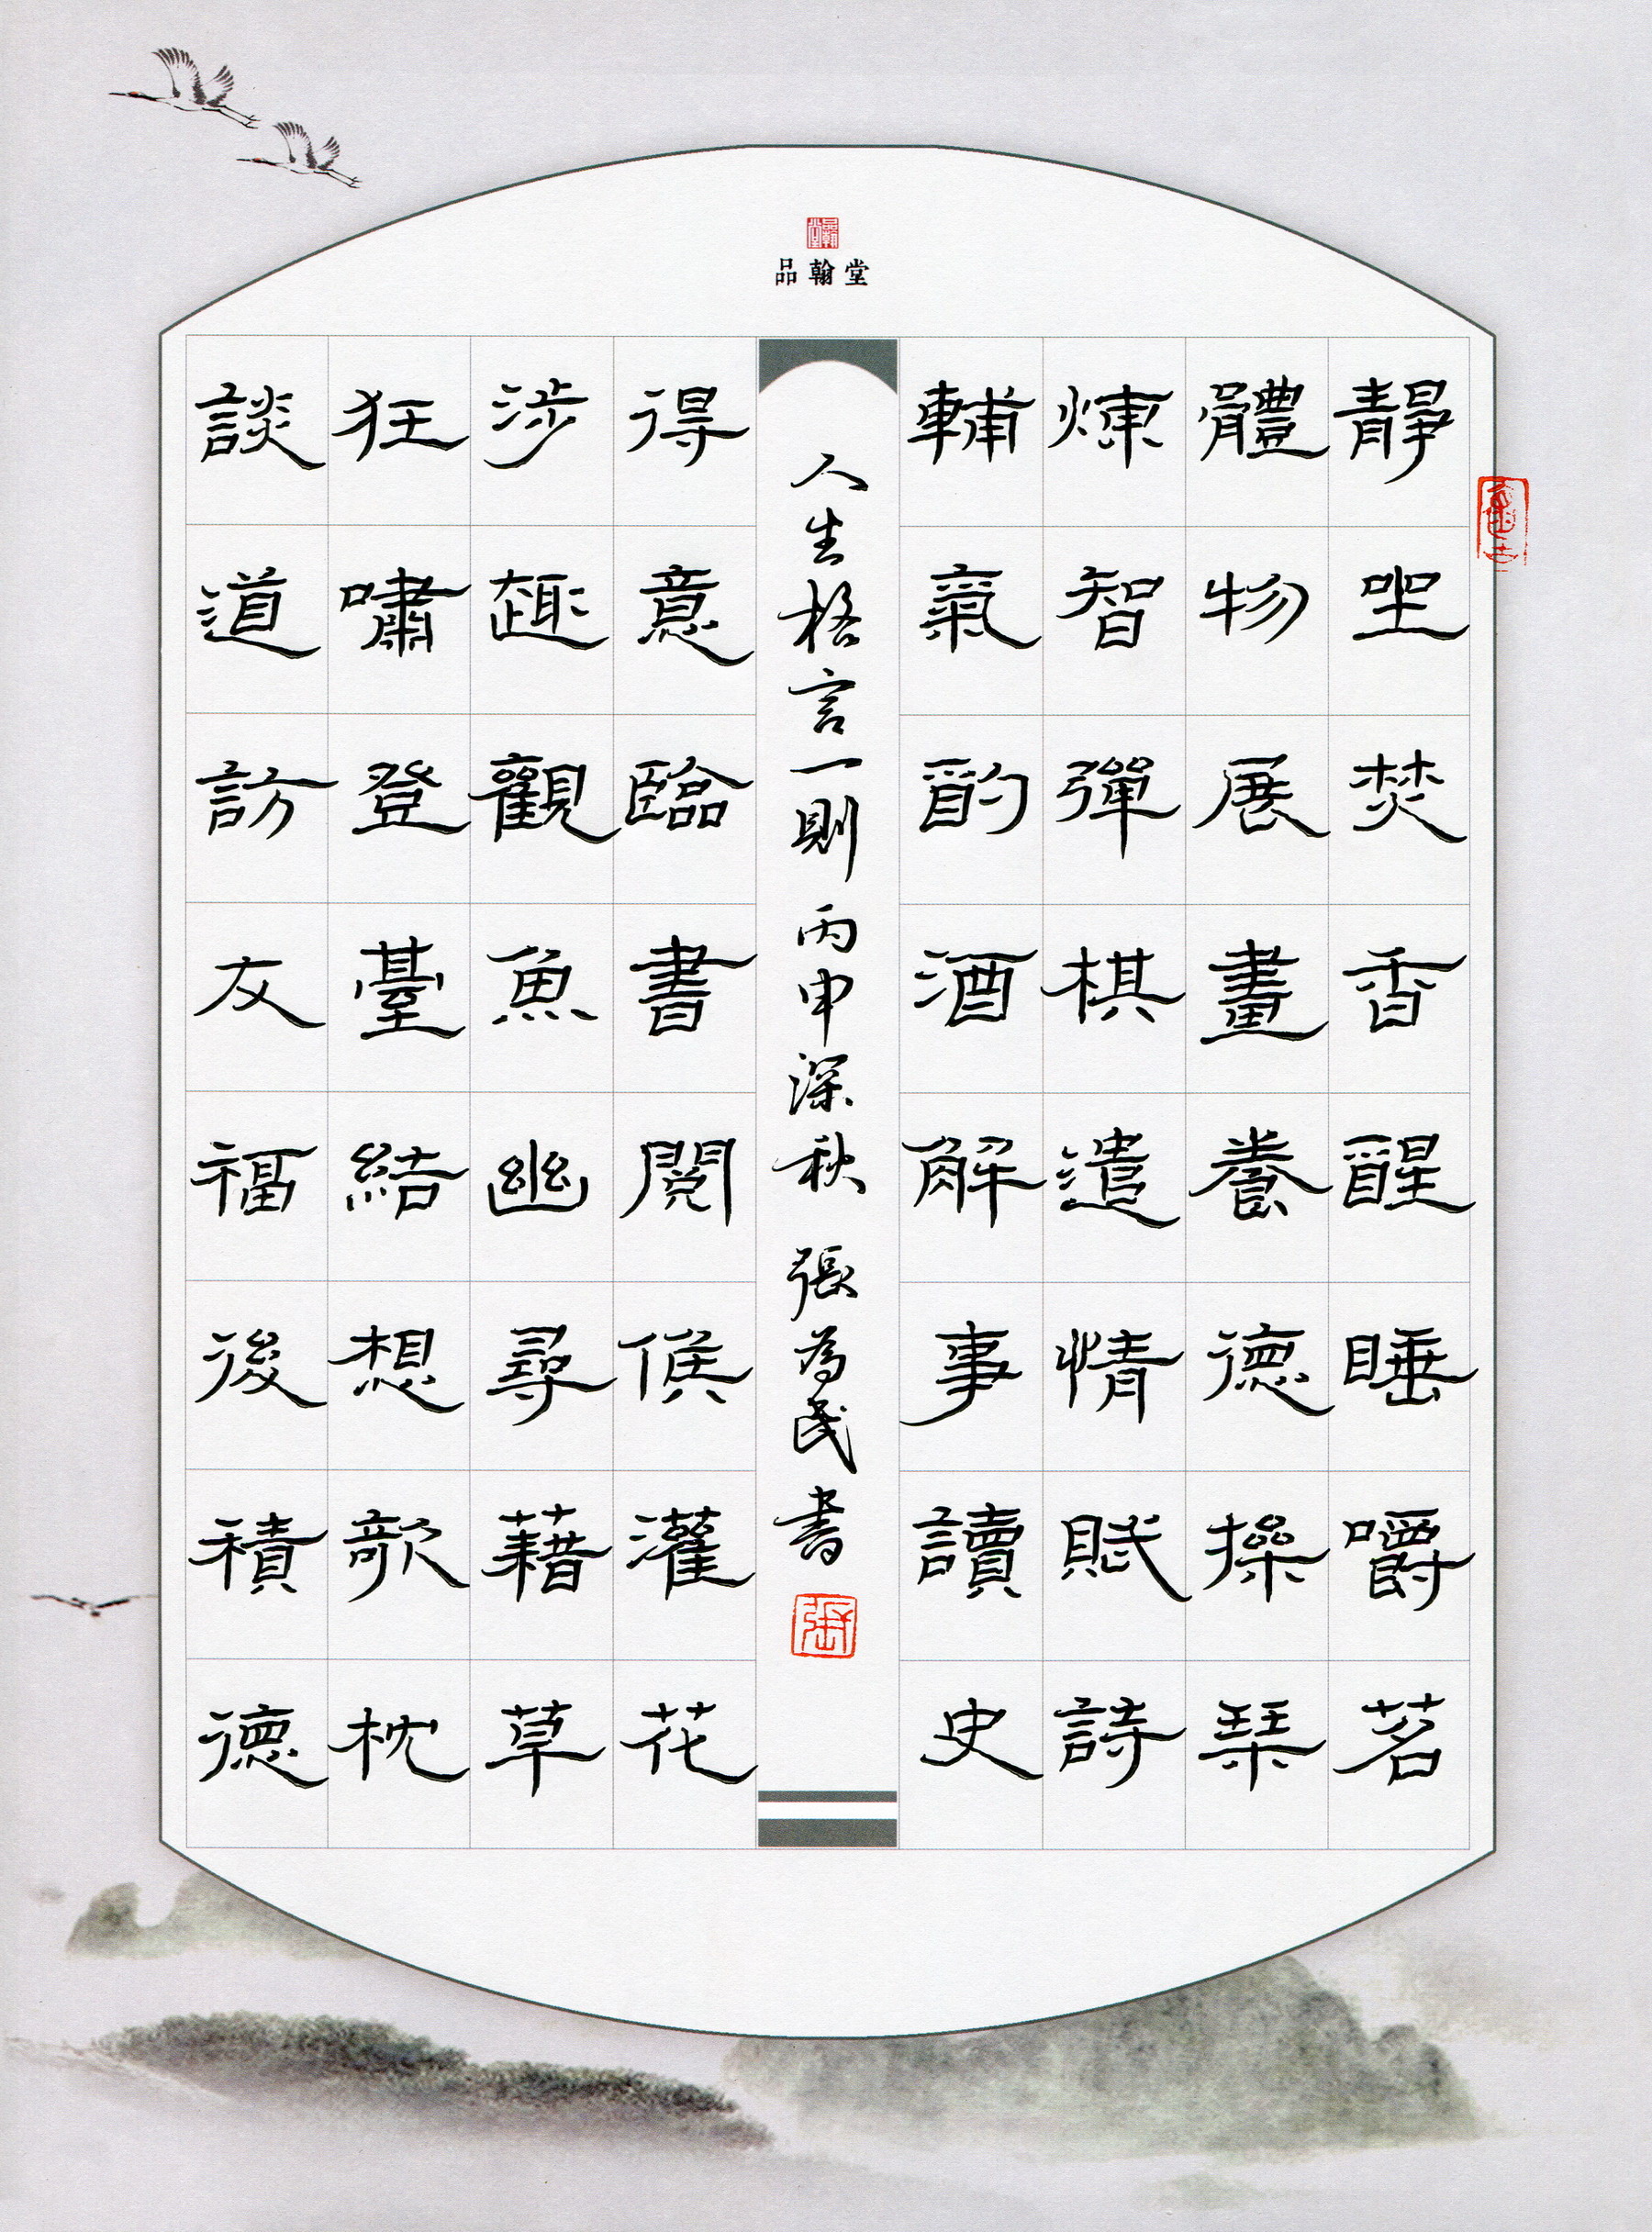 品翰堂
靜坐焚香醒睡嚼茗
體物展畫養德操琴
煉智彈棋遣情賦詩
輔氣酌酒解事讀史
人生格言一則 丙申深秋 張為民書
張
得意臨書閱候灌花
涉趣觀魚幽尋藉草
狂嘯登臺結想欹枕
談道訪友福後積德